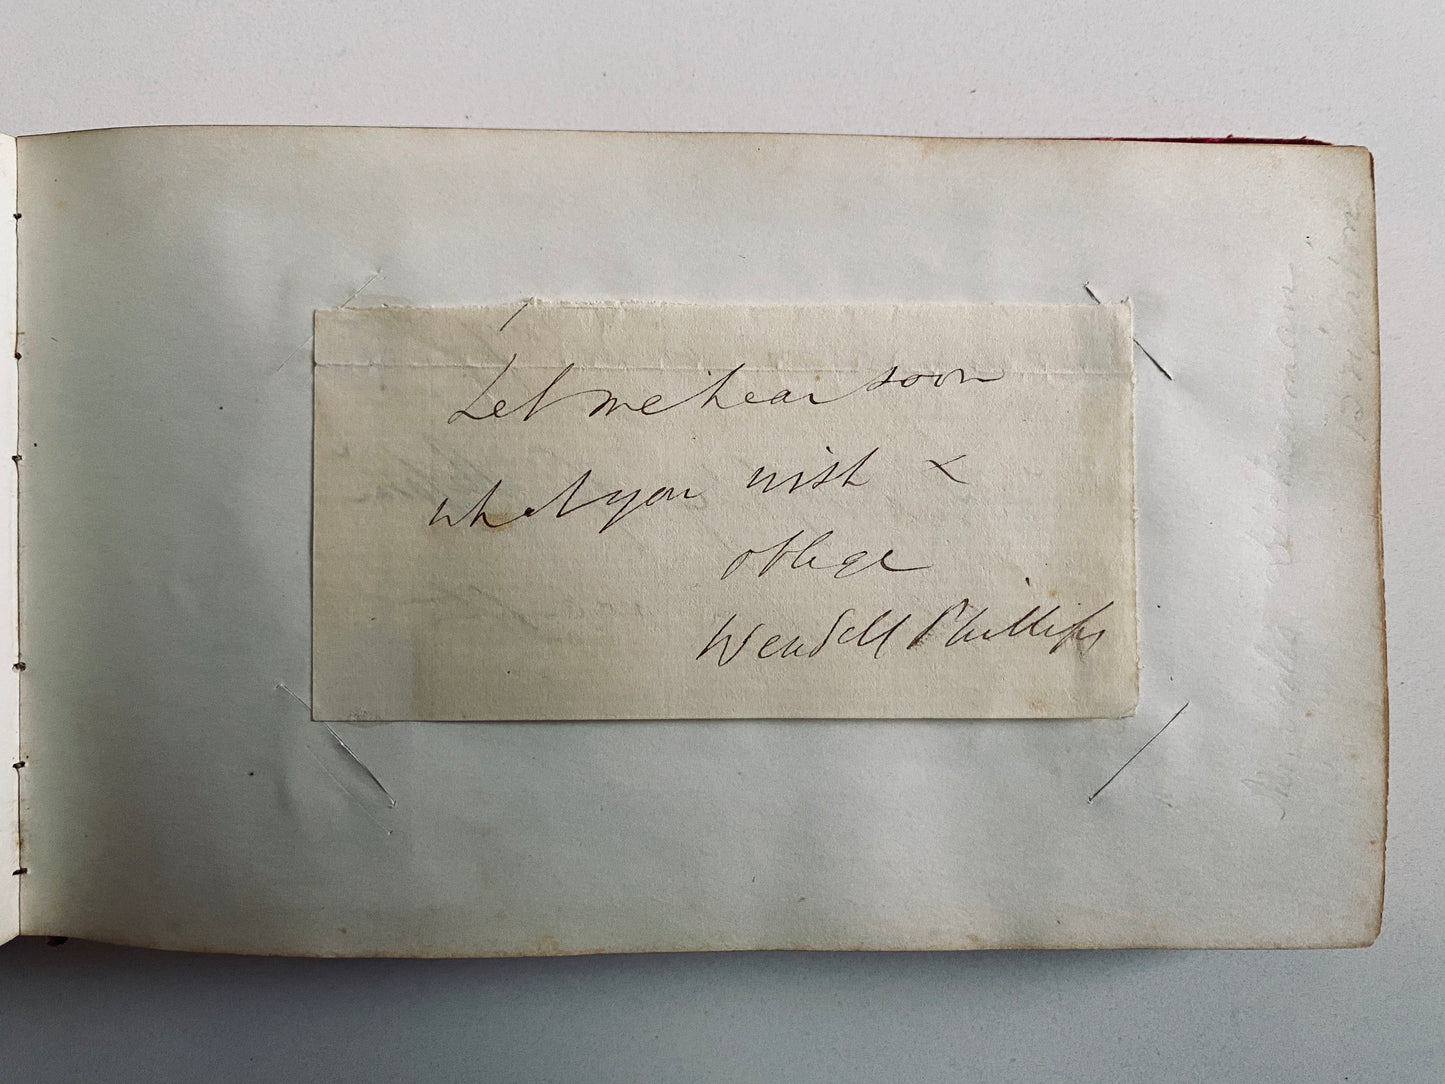 Let me hear soon
what you wish &
oblige
Wendell Phillips